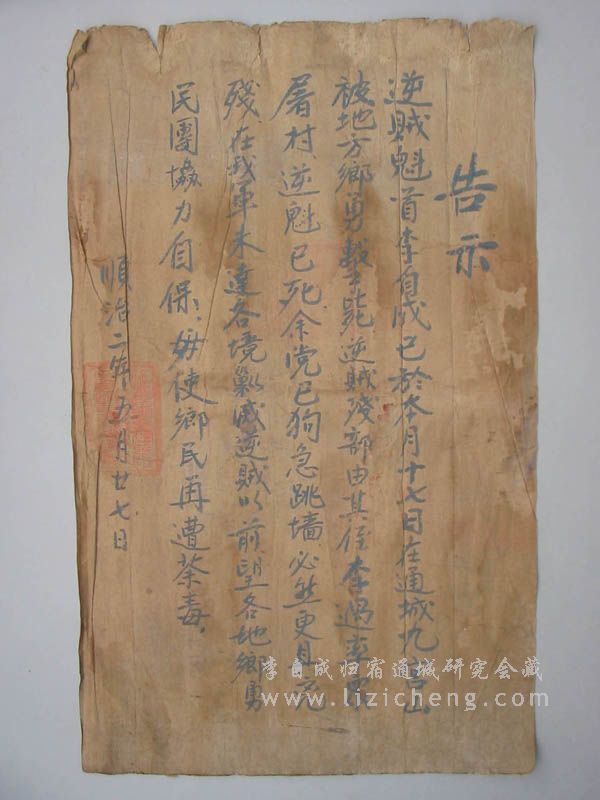 告示
逆賊魁首李自成已於本月十七日在通城九宫山
被地方鄉勇擊毙逆賊殘部由其侄李過率衆
屠村逆魁已死余党已狗急跳墙必然更且兇
殘在我軍未達各境剿滅逆賊以前望各地鄉勇
民團協力自保、毋使鄉民再遭荼毒、
順治二年五月廿七日
李自成归宿通城研究会藏
www.lizicheng.com